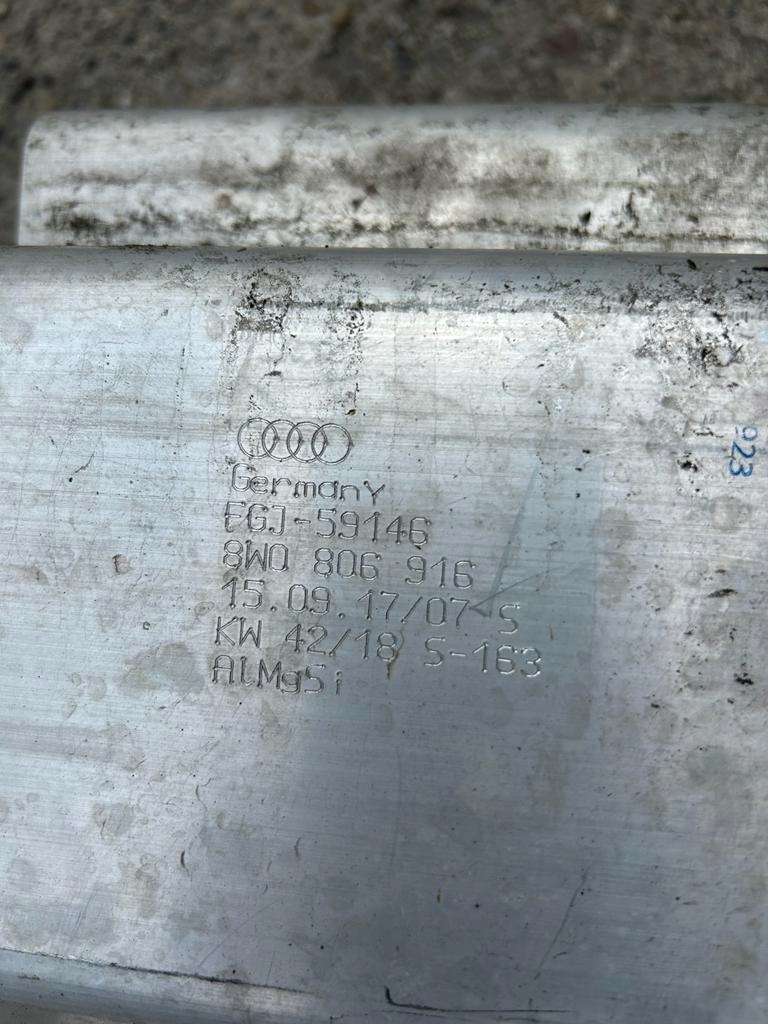 Germany
FGJ-59146
8W0 806 916
15.09.17/07 S
KW 42/18 S-163
AlMgSi
923